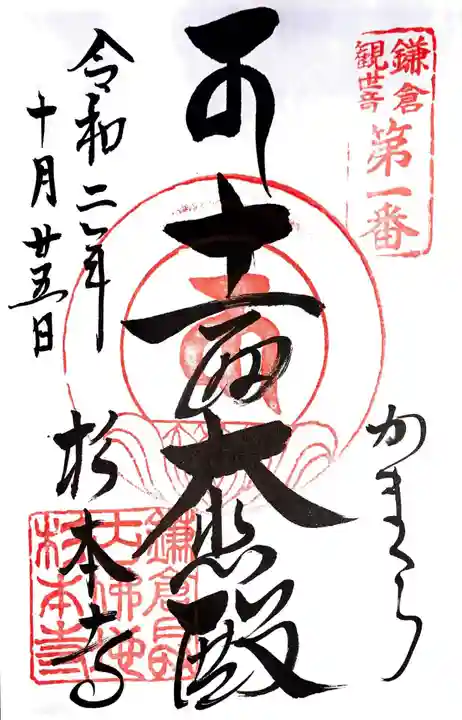 鎌倉
観世音
第一番
かまくら
十一面大悲殿
令和二年
十月廿五日
杉本寺
鎌倉最
古佛地
杉本寺